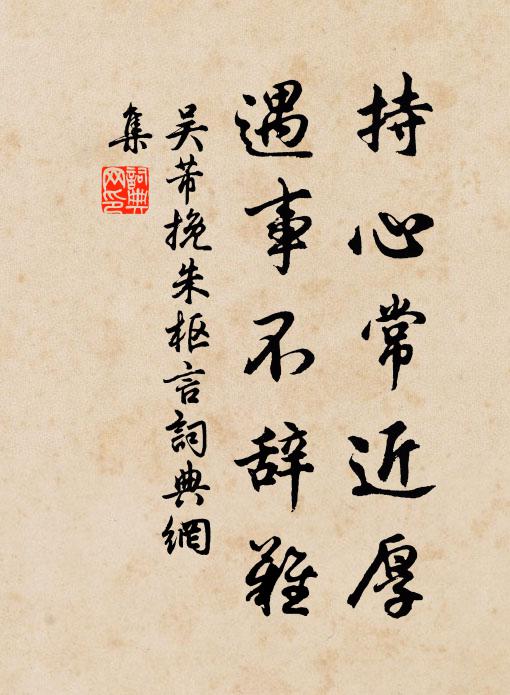 持心常近厚
遇事不辞難
吴芾挽朱枢言詞典網
集
詞典
网印